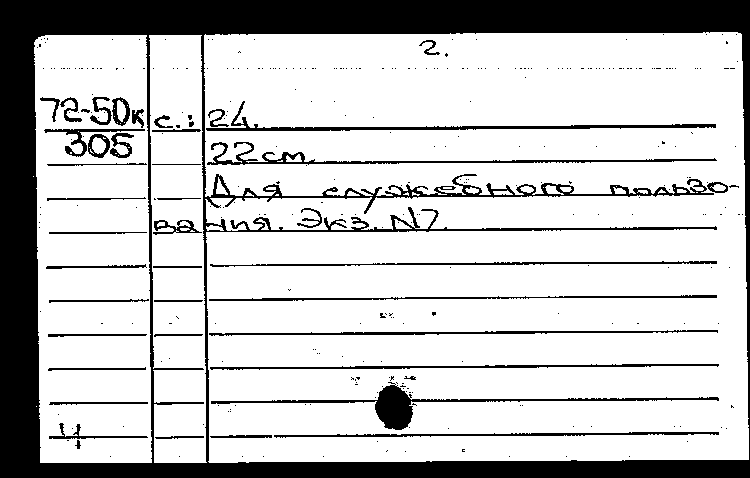 2.
72-50к с.: 24.
305 22 см.
Для служебного пользо-
вания. Экз. N7.
Ч